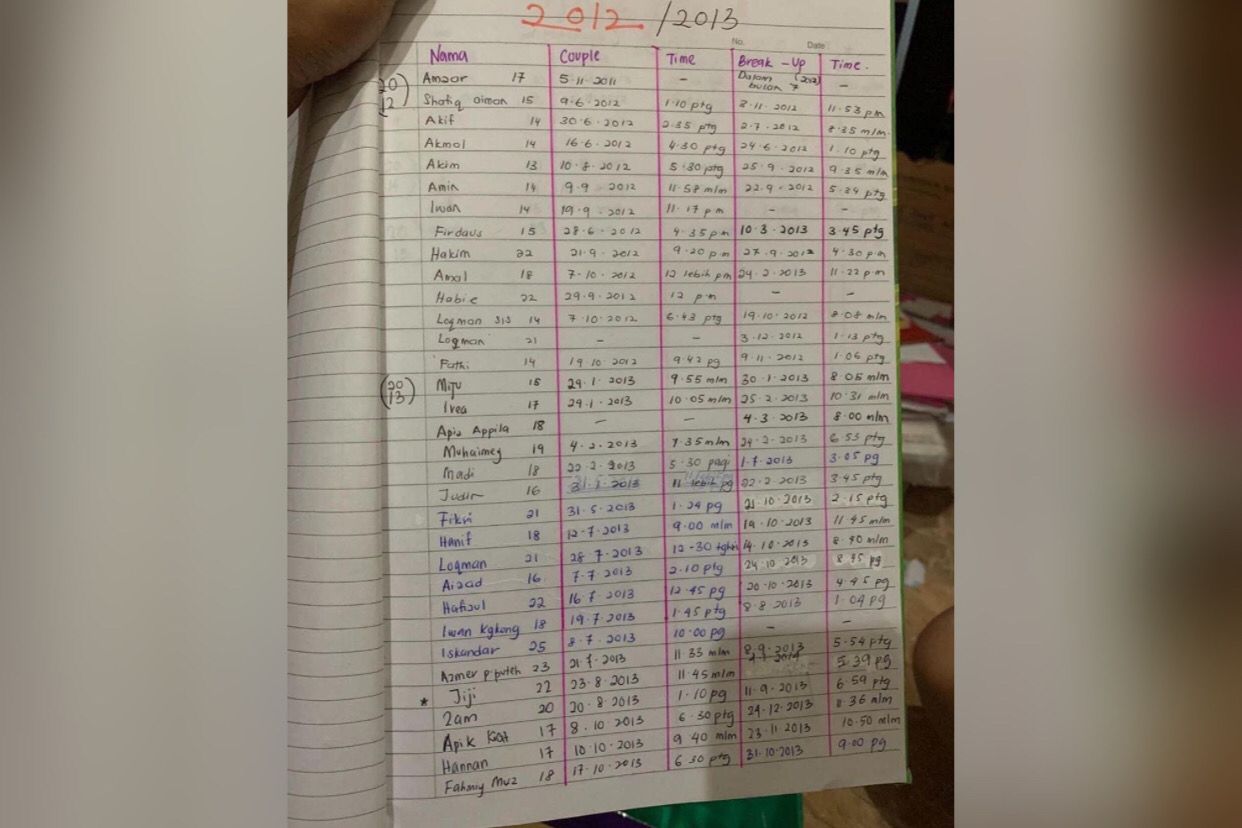 2012 / 2013
No. Date
Nama Couple Time Break - Up Time.
(20 12) Amzar 17 5.11.2011 - Dalam bulan 7 (2012) -
Shafiq aiman 15 9.6.2012 1.10 ptg 2.11.2012 11.53 pm
Akif 14 30.6.2012 2.35 ptg 2.7.2012 8.35 mlm.
Akmal 14 16.6.2012 4.30 ptg 24.6.2012 1.10 ptg
Akim 13 10.8.2012 5.30 ptg 25.9.2012 9.35 mlm
Amin 14 9.9.2012 11.58 mlm 22.9.2012 5.24 ptg
Iwan 14 19.9.2012 11.17 pm - -
Firdaus 15 28.6.2012 4.35 pm 10.3.2013 3.45 ptg
Hakim 22 21.9.2012 9.20 pm 27.9.2012 4.30 pm
Amal 18 7.10.2012 12 lebih pm 24.2.2013 11.22 pm
Habie 22 29.9.2012 12 pm - -
Loqman sis 14 7.10.2012 6.43 ptg 19.10.2012 8.08 mlm
Loqman 21 - - 3.12.2012 1.13 ptg
Fathi 14 19.10.2012 9.42 pg 9.11.2012 1.06 ptg
(20 13) Miju 15 29.1.2013 9.55 mlm 30.1.2013 8.05 mlm
17 29.1.2013 10.05 mlm 25.2.2013 10.31 mlm
Apis Appila 18 - - 4.3.2013 8.00 mlm
19 4.2.2013 7.35 mlm 24.2.2013 6.53 ptg
Madi 18 22.2.2013 5.30 pagi 1.7.2013 3.05 pg
16 31.1.2013 11 lebih pg 22.2.2013 3.45 ptg
Fikri 21 31.5.2013 1.24 pg 21.10.2013 2.15 ptg
Hanif 18 12.7.2013 9.00 mlm 19.10.2013 11.45 mlm
Loqman 21 28.7.2013 12.30 tghri 14.10.2013 8.40 mlm
Aizad 16 7.7.2013 2.10 ptg 24.10.2013 8.45 pg
Hafizul 22 16.7.2013 12.45 pg 20.10.2013 4.45 pg
Iwan Kgkong 18 19.7.2013 1.45 ptg 8.8.2013 1.04 pg
Iskandar 25 8.7.2013 10.00 pg - -
Azmer p.puteh 23 21.7.2013 11.35 mlm 8.9.2013 5.54 ptg
* Jiji 22 23.8.2013 11.45 mlm 5.39 pg
Zam 20 20.8.2013 1.10 pg 11.9.2013 6.59 ptg
Apik Kat 17 8.10.2013 6.30 ptg 24.12.2013 8.36 mlm
Hannan 17 10.10.2013 9.40 mlm 23.11.2013 10.50 mlm
Fahmiy Muz 18 17.10.2013 6.30 ptg 31.10.2013 9.00 pg